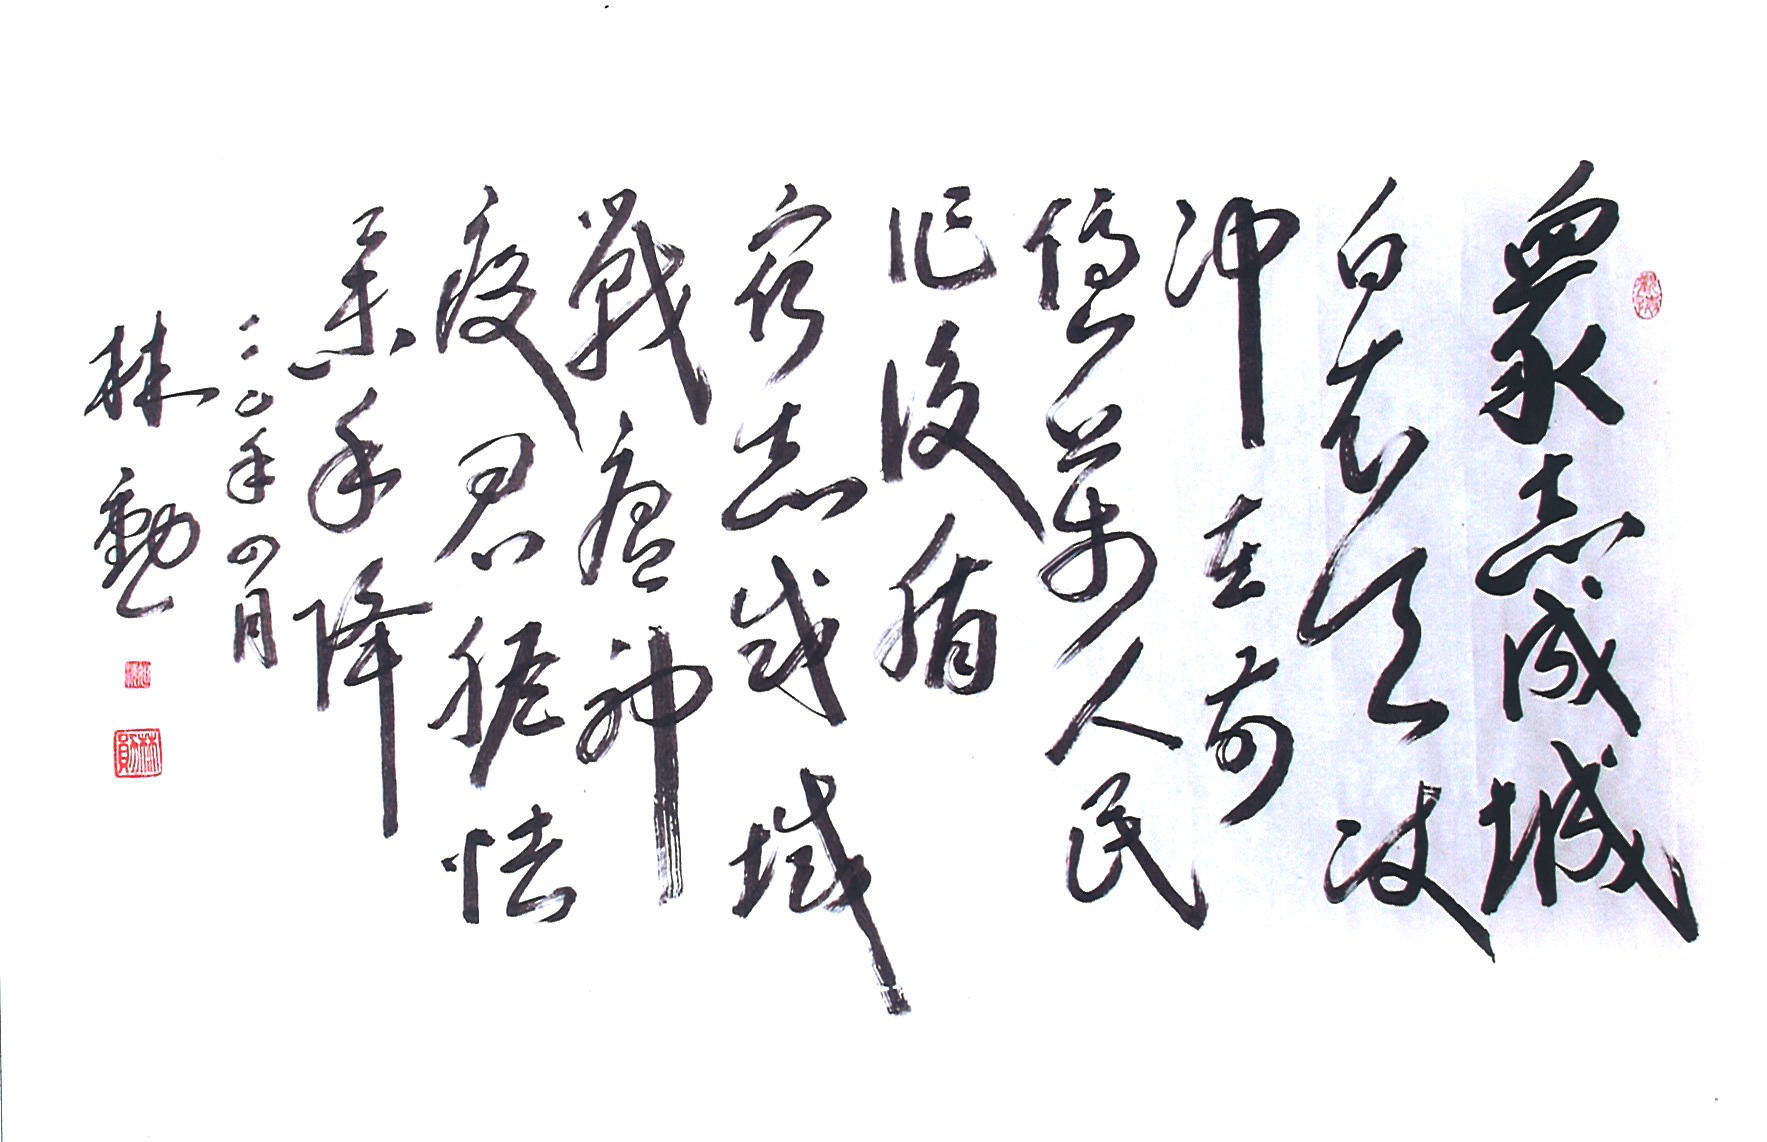 眾志成城
白衣天使
冲在前
億萬人民
作後盾
眾志成城
戰瘟神
疫君膽怯
舉手降
二〇二〇年四月
林勳
林勛